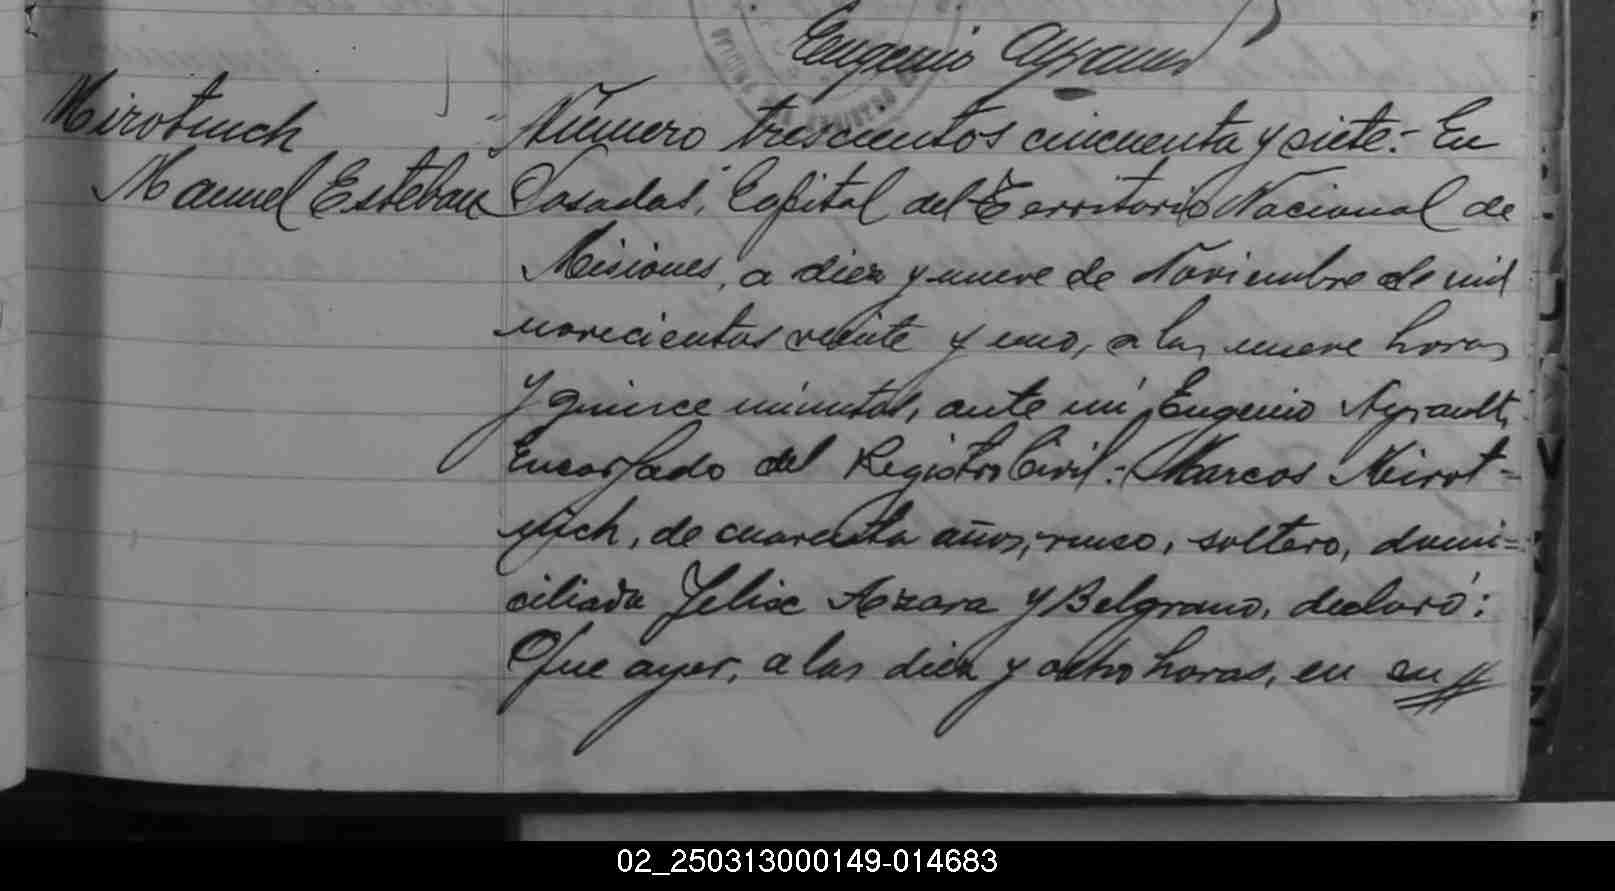 Eugenio Ayrault
Mirotinch
Manuel Esteban
Número trescientos cincuenta y siete:- En
Posadas, Capital del Territorio Nacional de
Misiones, a diez y nueve de Noviembre de mil
novecientos veinte y uno, a las nueve horas
y quince minutos, ante mí Eugenio Ayrault,
Encargado del Registro Civil: Marcos Mirot-
nich, de cuarenta años, ruso, soltero, domi=
ciliado Felix Azara y Belgrano, declaró:
Que ayer, a las diez y ocho horas, en su
02_250313000149-014683